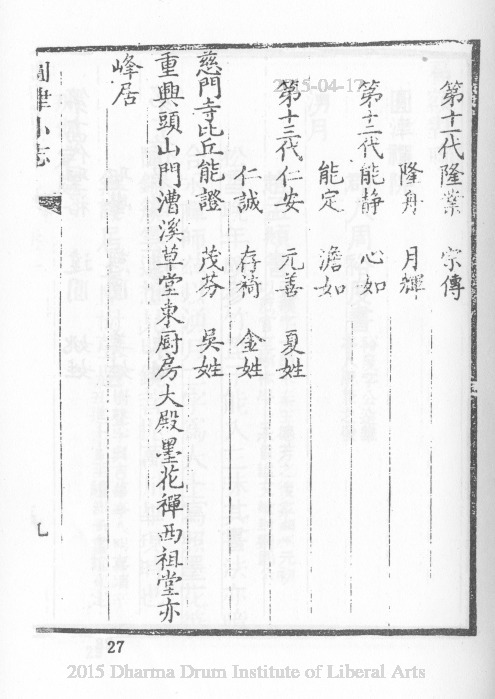 第十一代隆業　宗傳
隆舟　月輝
第十二代能静　心如
能定　澹如
第十三代仁安　元善　夏姓
仁誠　存裿　金姓
慈門寺比丘能證　茂芬　吳姓
重興頭山門漕溪草堂東厨房大殿墨花禪西祖堂亦
峰居
圓津小志
九
27
2015-04-17
2015 Dharma Drum Institute of Liberal Arts